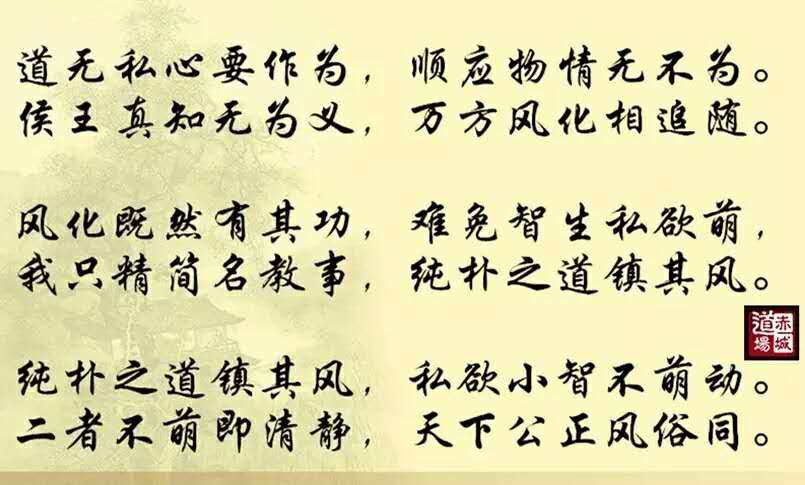 道无私心要作为，顺应物情无不为。
侯王真知无为义，万方风化相追随。
风化既然有其功，难免智生私欲萌，
我只精简名教事，纯朴之道镇其风。
纯朴之道镇其风，私欲小智不萌动。
二者不萌即清静，天下公正风俗同。
赤城
道場